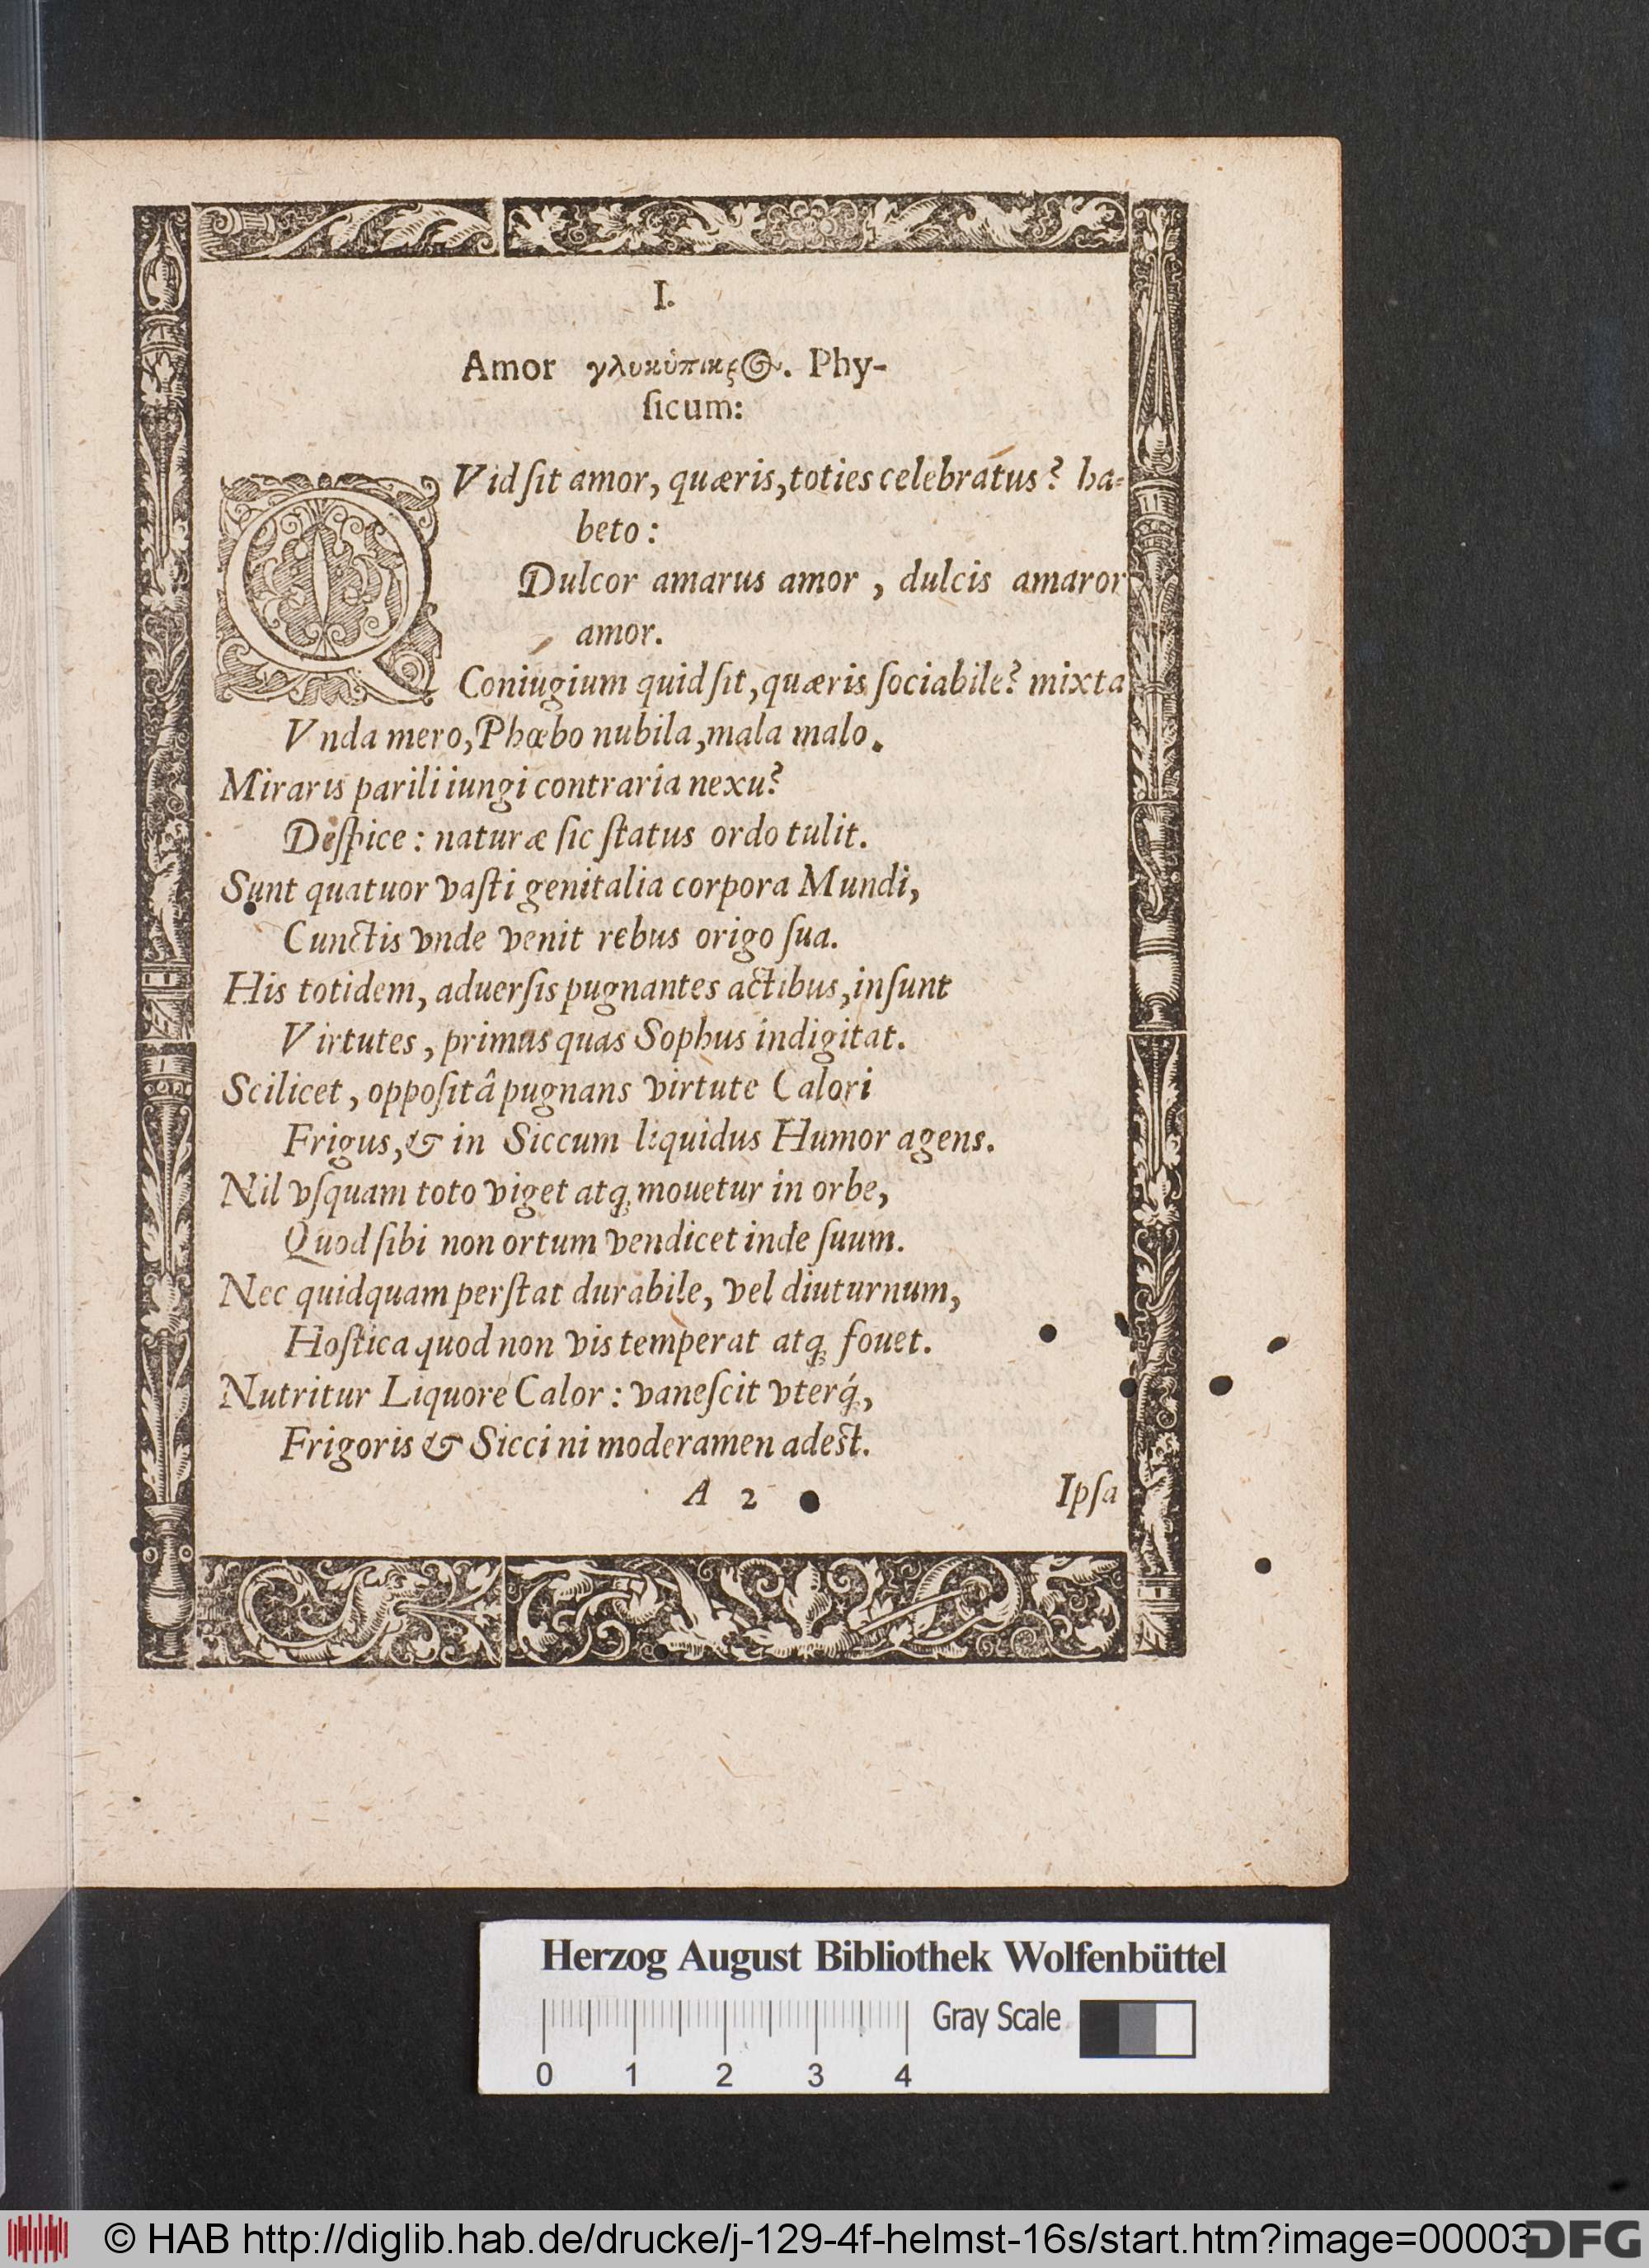 I.
Amor γλυκύπικρος. Phy-
ſicum:
QVid ſit amor, quæris, toties celebratus? ha-
beto:
Dulcor amarus amor, dulcis amaror
amor.
Coniugium quid ſit, quæris ſociabile? mixta
Vnda mero, Phœbo nubila, mala malo.
Miraris parili iungi contraria nexu?
Deſpice: naturæ ſic ſtatus ordo tulit.
Sunt quatuor vaſti genitalia corpora Mundi,
Cunctis vnde venit rebus origo ſua.
His totidem, aduerſis pugnantes actibus, inſunt
Virtutes, primus quas Sophus indigitat.
Scilicet, oppoſitâ pugnans virtute Calori
Frigus, & in Siccum liquidus Humor agens.
Nil vſquam toto viget atq; mouetur in orbe,
Quod ſibi non ortum vendicet inde ſuum.
Nec quidquam perſtat durabile, vel diuturnum,
Hoſtica quod non vis temperat atq; fouet.
Nutritur Liquore Calor: vaneſcit vterq́;,
Frigoris & Sicci ni moderamen adeſt.
A 2 Ipſa
Herzog August Bibliothek Wolfenbüttel
Gray Scale
0 1 2 3 4
© HAB http://diglib.hab.de/drucke/j-129-4f-helmst-16s/start.htm?image=00003
DFG